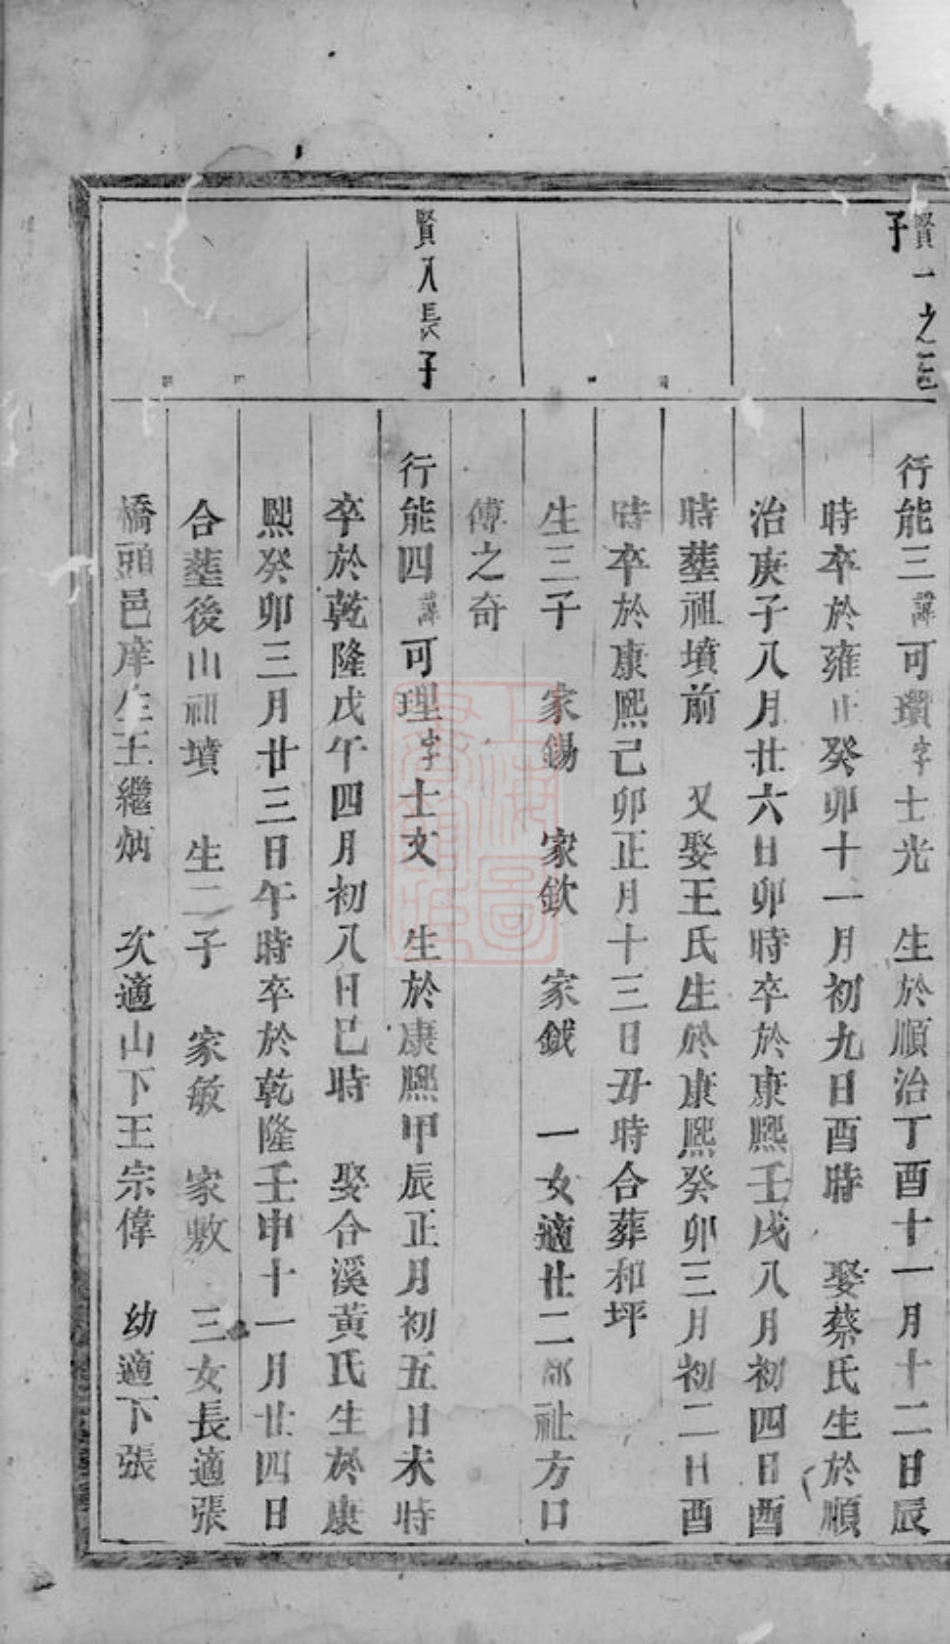 賢一之三子
行能三諱可瓚字士光　生於順治丁酉十一月十二日辰
時卒於雍正癸卯十一月初九日酉時　娶蔡氏生於順
治庚子八月廿六日卯時卒於康熙壬戌八月初四日酉
時塟祖墳前　又娶王氏生於康熙癸卯三月初二日酉
時卒於康熙己卯正月十三日丑時合葬和坪
生三子　家錫　家欽　家鉞　一女適廿二都祉方口
傅之奇
賢八長子
行能四諱可理字士文　生於康熙甲辰正月初五日未時
卒於乾隆戊午四月初八日巳時　娶合溪黃氏生於康
熙癸卯三月廿三日午時卒於乾隆壬申十一月廿四日
合塟後山祖墳　生二子　家敏　家敷　三女長適張
橋頭邑庠生王繼炳　次適山下王宗偉　幼適下張